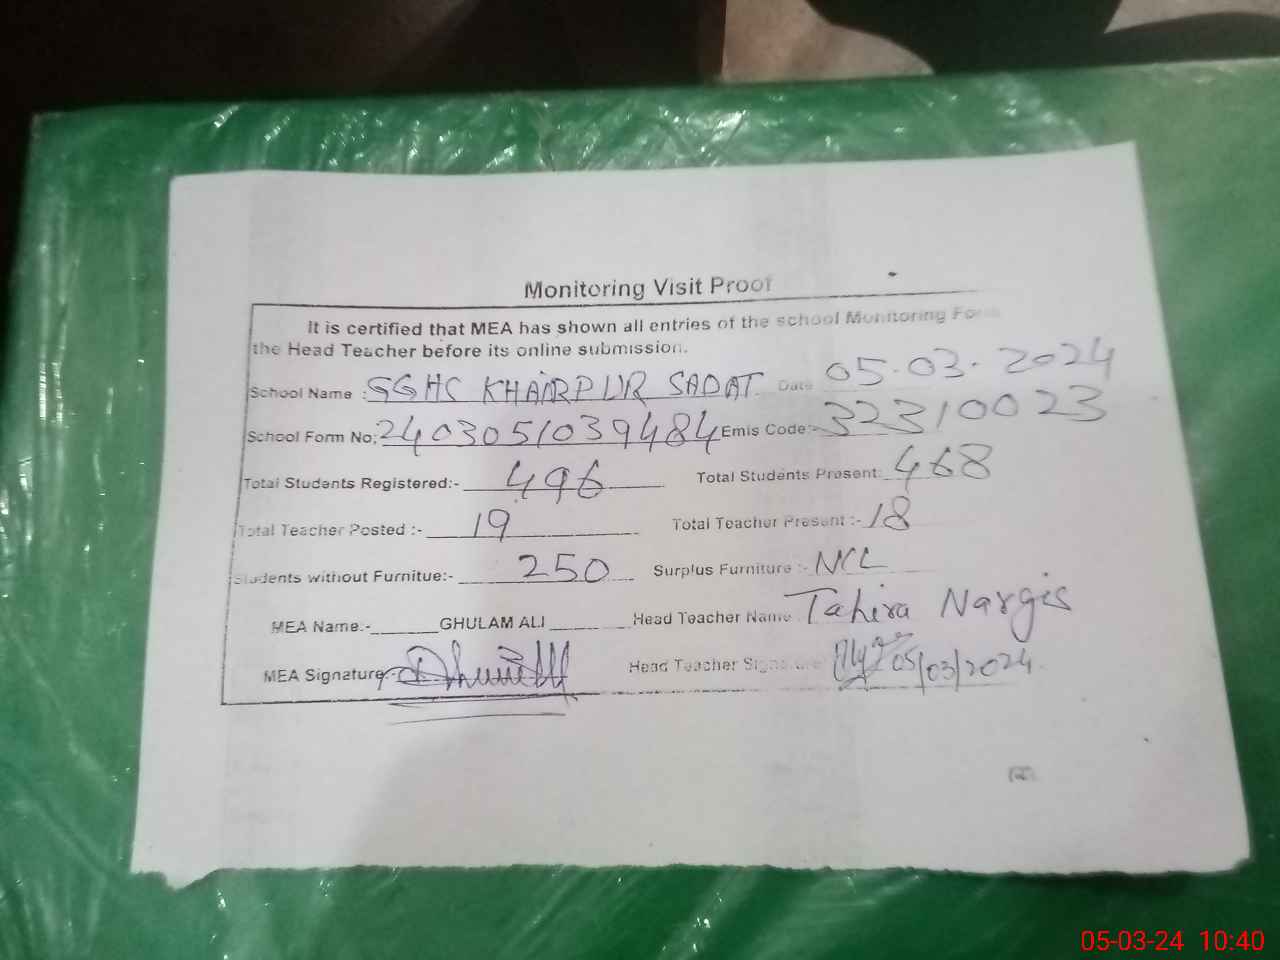 Monitoring Visit Proof
It is certified that MEA has shown all entries of the school Monitoring Form
the Head Teacher before its online submission.
School Name : GGHS KHAIRPUR SADAT Date 05.03.2024
School Form No: 2403051039484 Emis Code:- 32310023
Total Students Registered:- 496 Total Students Present: 468
Total Teacher Posted :- 19 Total Teacher Present :- 18
Students without Furnitue:- 250 Surplus Furniture :- NIL
MEA Name:- GHULAM ALI Head Teacher Name Tahira Nargis
MEA Signature:- Head Teacher Signature 05/03/2024
05-03-24 10:40